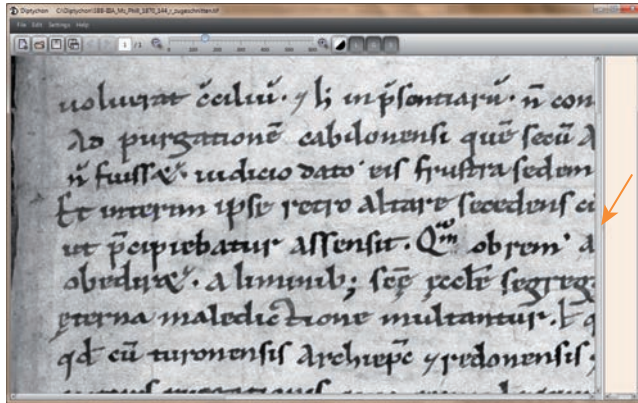 Diptychon C:\Diptychon\SBB-IIIA_Ms_Phill_1870_144_r_zugeschnitten.tif
File Edit Settings Help
1 /1
uoluerat c̄ciliū. ⁊ in p̄sentiarū. n̄ con
Ad purgationē cabilonensi quē secū A
n̄ fuiss&. iudicio dato eis frustra sedem
Et interim ipse retro Altare secedens
ut p̄cipiebatur Assensit. ob rem
obedir&. A liminib; sc̄e ecclē segreg
ęterna maledictione multantur.
qd̄ cū turonensis Archiep̄c ⁊ redonensis